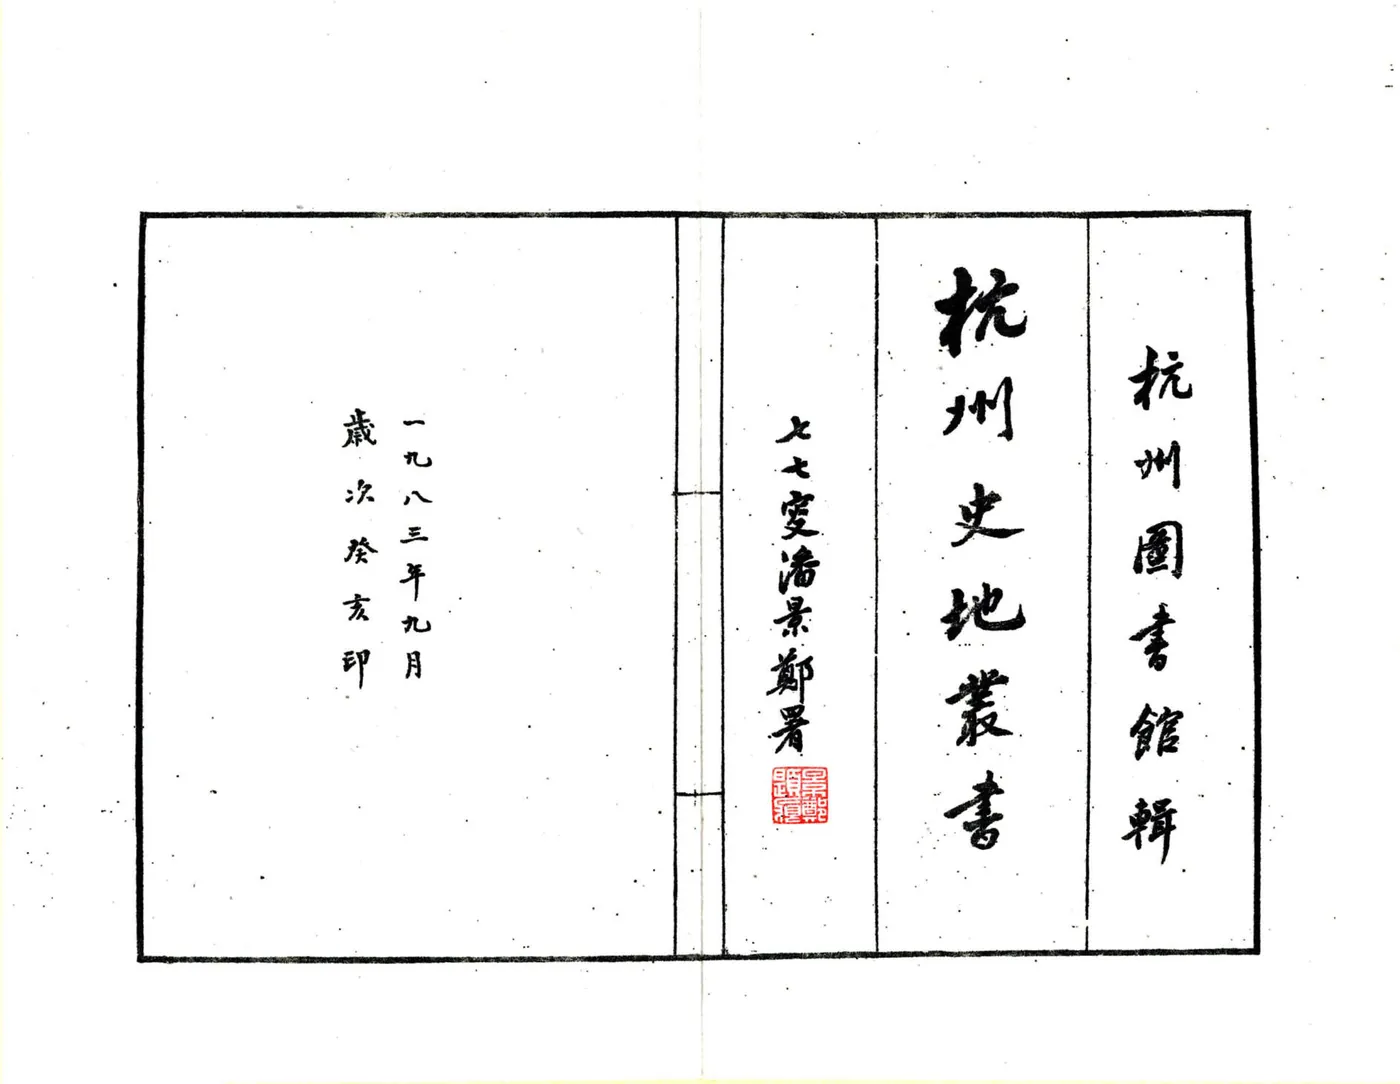 杭州圖書館輯
杭州史地叢書
七七叟潘景鄭署
景鄭
一九八三年九月
歲次癸亥印